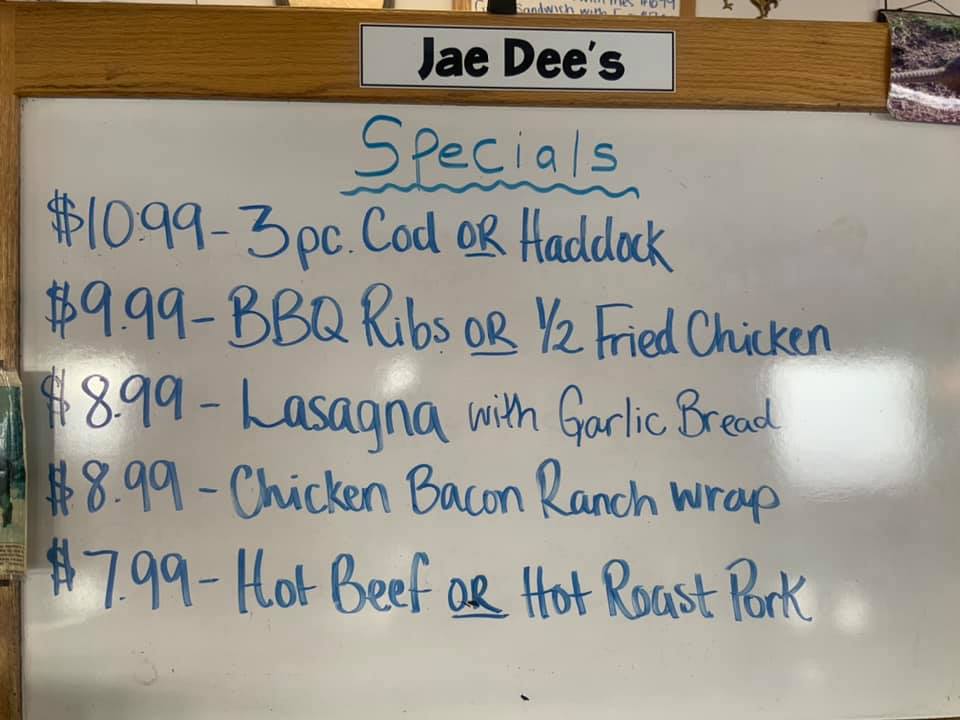 Sandwich with
Jae Dee's
Specials
$10.99 - 3 pc. Cod OR Haddock
$9.99 - BBQ Ribs OR 1/2 Fried Chicken
$8.99 - Lasagna with Garlic Bread
$8.99 - Chicken Bacon Ranch wrap
$7.99 - Hot Beef OR Hot Roast Pork